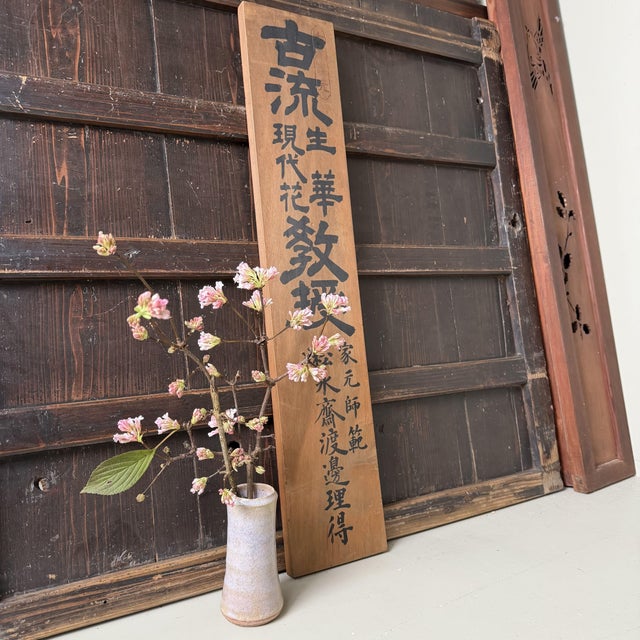 古流
生華
現代花
教授
家元師範
松木齋渡邊理得